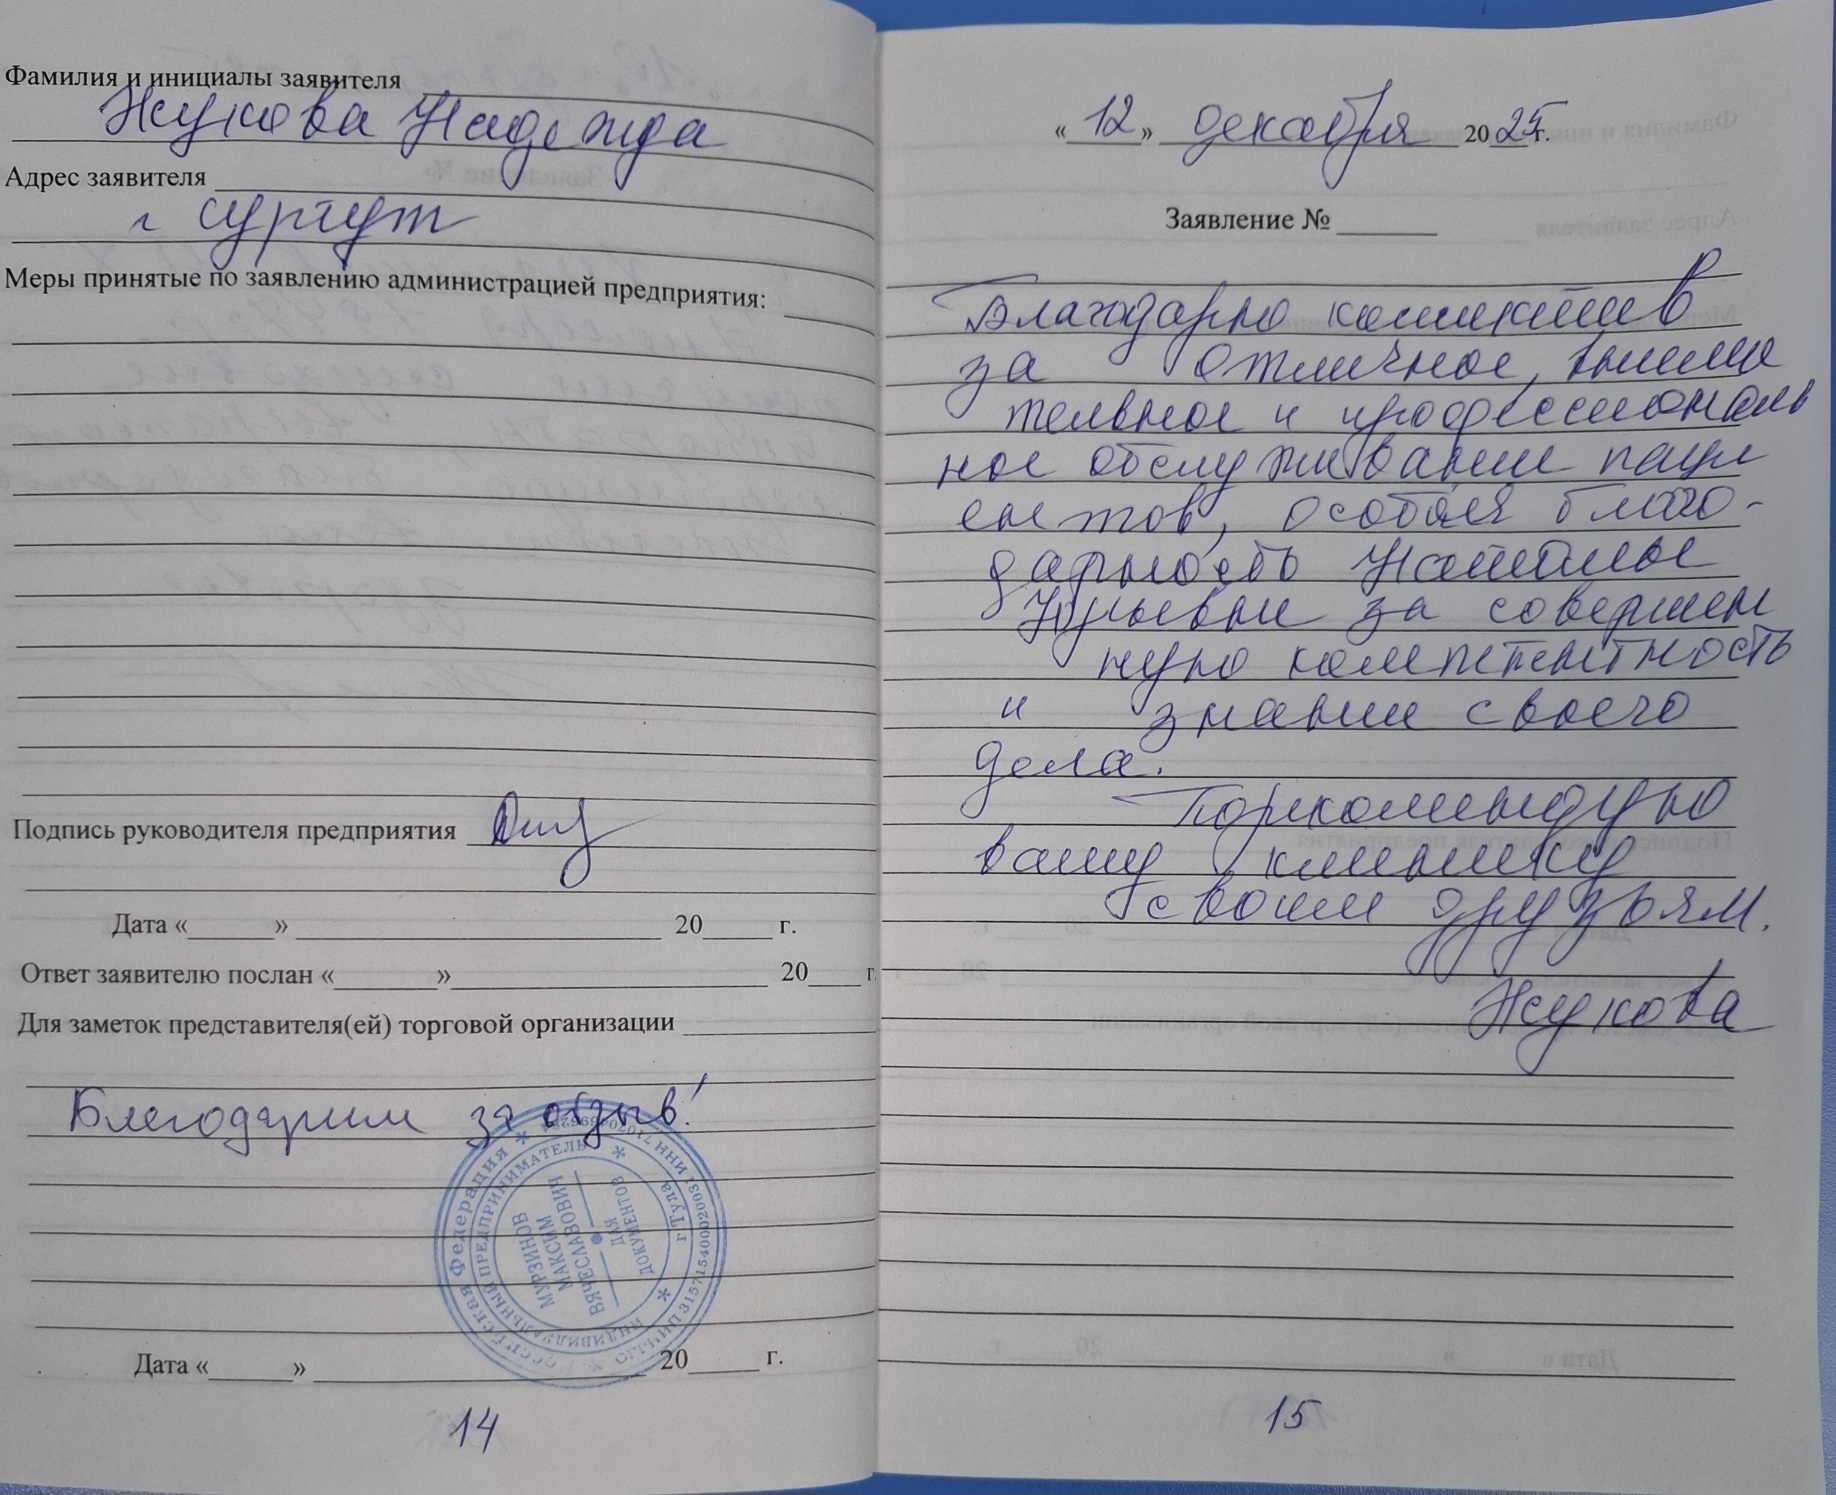 Фамилия и инициалы заявителя
Жукова Надежда
Адрес заявителя
г Сургут
Меры принятые по заявлению администрацией предприятия:
Подпись руководителя предприятия
Дата « » 20 г.
Ответ заявителю послан « » 20 г.
Для заметок представителя(ей) торговой организации
Благодарим за отзыв!
Российская Федерация
ИНДИВИДУАЛЬНЫЙ ПРЕДПРИНИМАТЕЛЬ
МУРЗИНОВ
МАКСИМ
ВЯЧЕСЛАВОВИЧ
ДЛЯ
ДОКУМЕНТОВ
г Тула
Дата « » 20 г.
14
« 12 » декабря 2025г.
Заявление №
Благодарю коллектив
за отличное, внима
тельное и профессиональ
ное обслуживание паци
ентов, особая благо-
дарность Наталье
Юрьевне за совершен
ную компетентность
и знание своего
дела.
Порекомендую
вашу клинику
своим друзьям.
Жукова
15